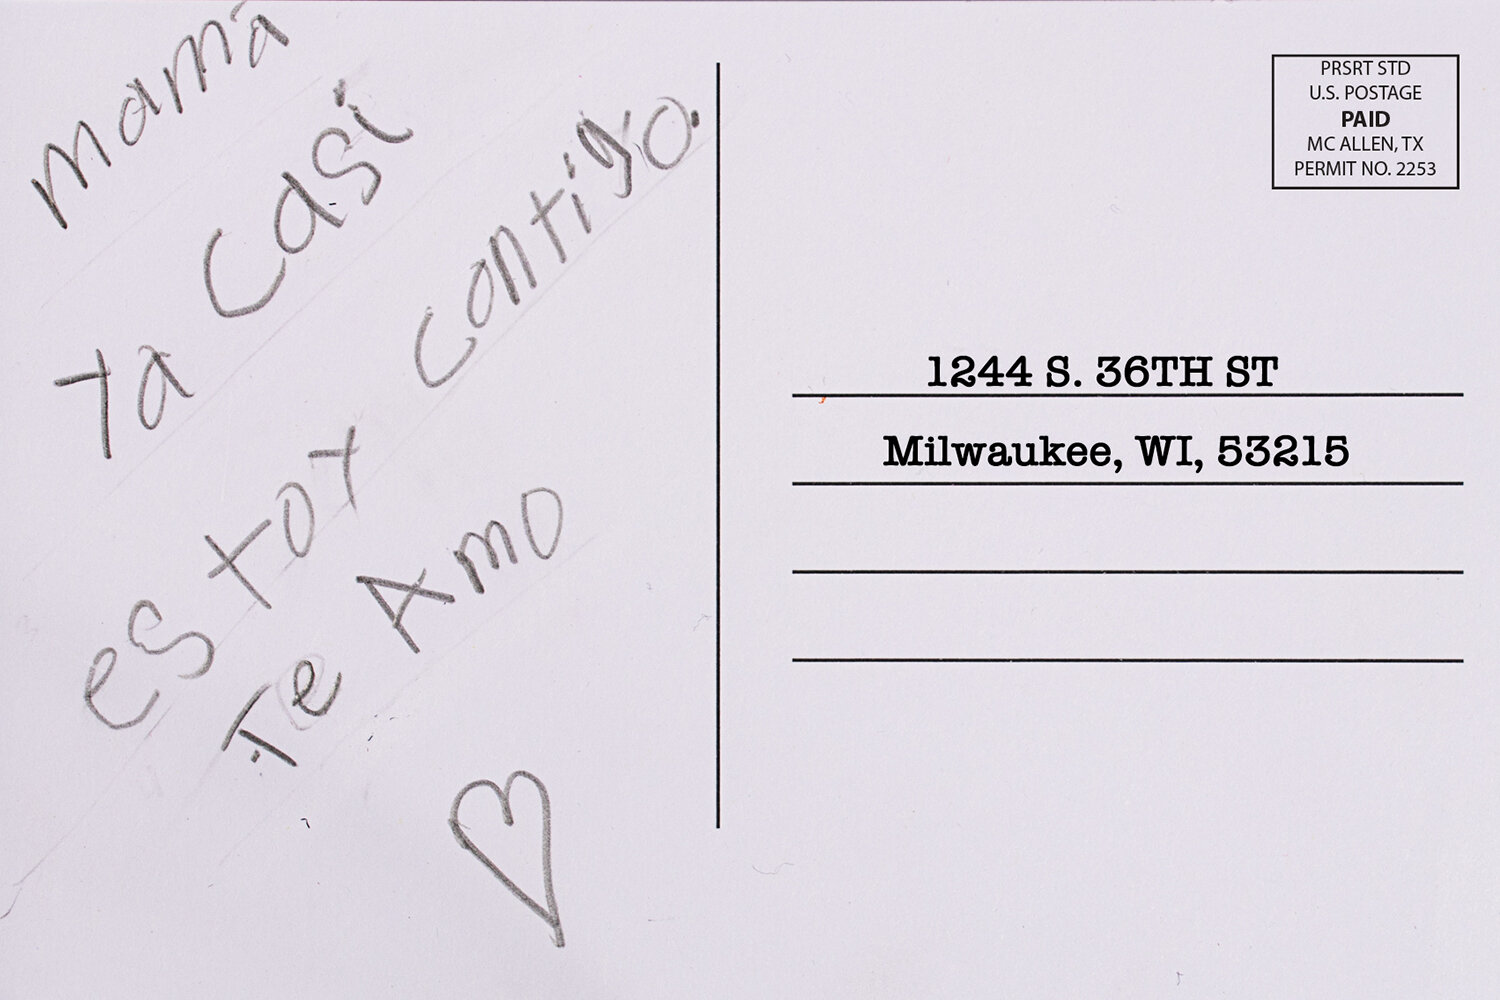 mamá
ya casi
estoy contigo.
Te Amo
PRSRT STD
U.S. POSTAGE
PAID
MC ALLEN, TX
PERMIT NO. 2253
1244 S. 36TH ST
Milwaukee, WI, 53215